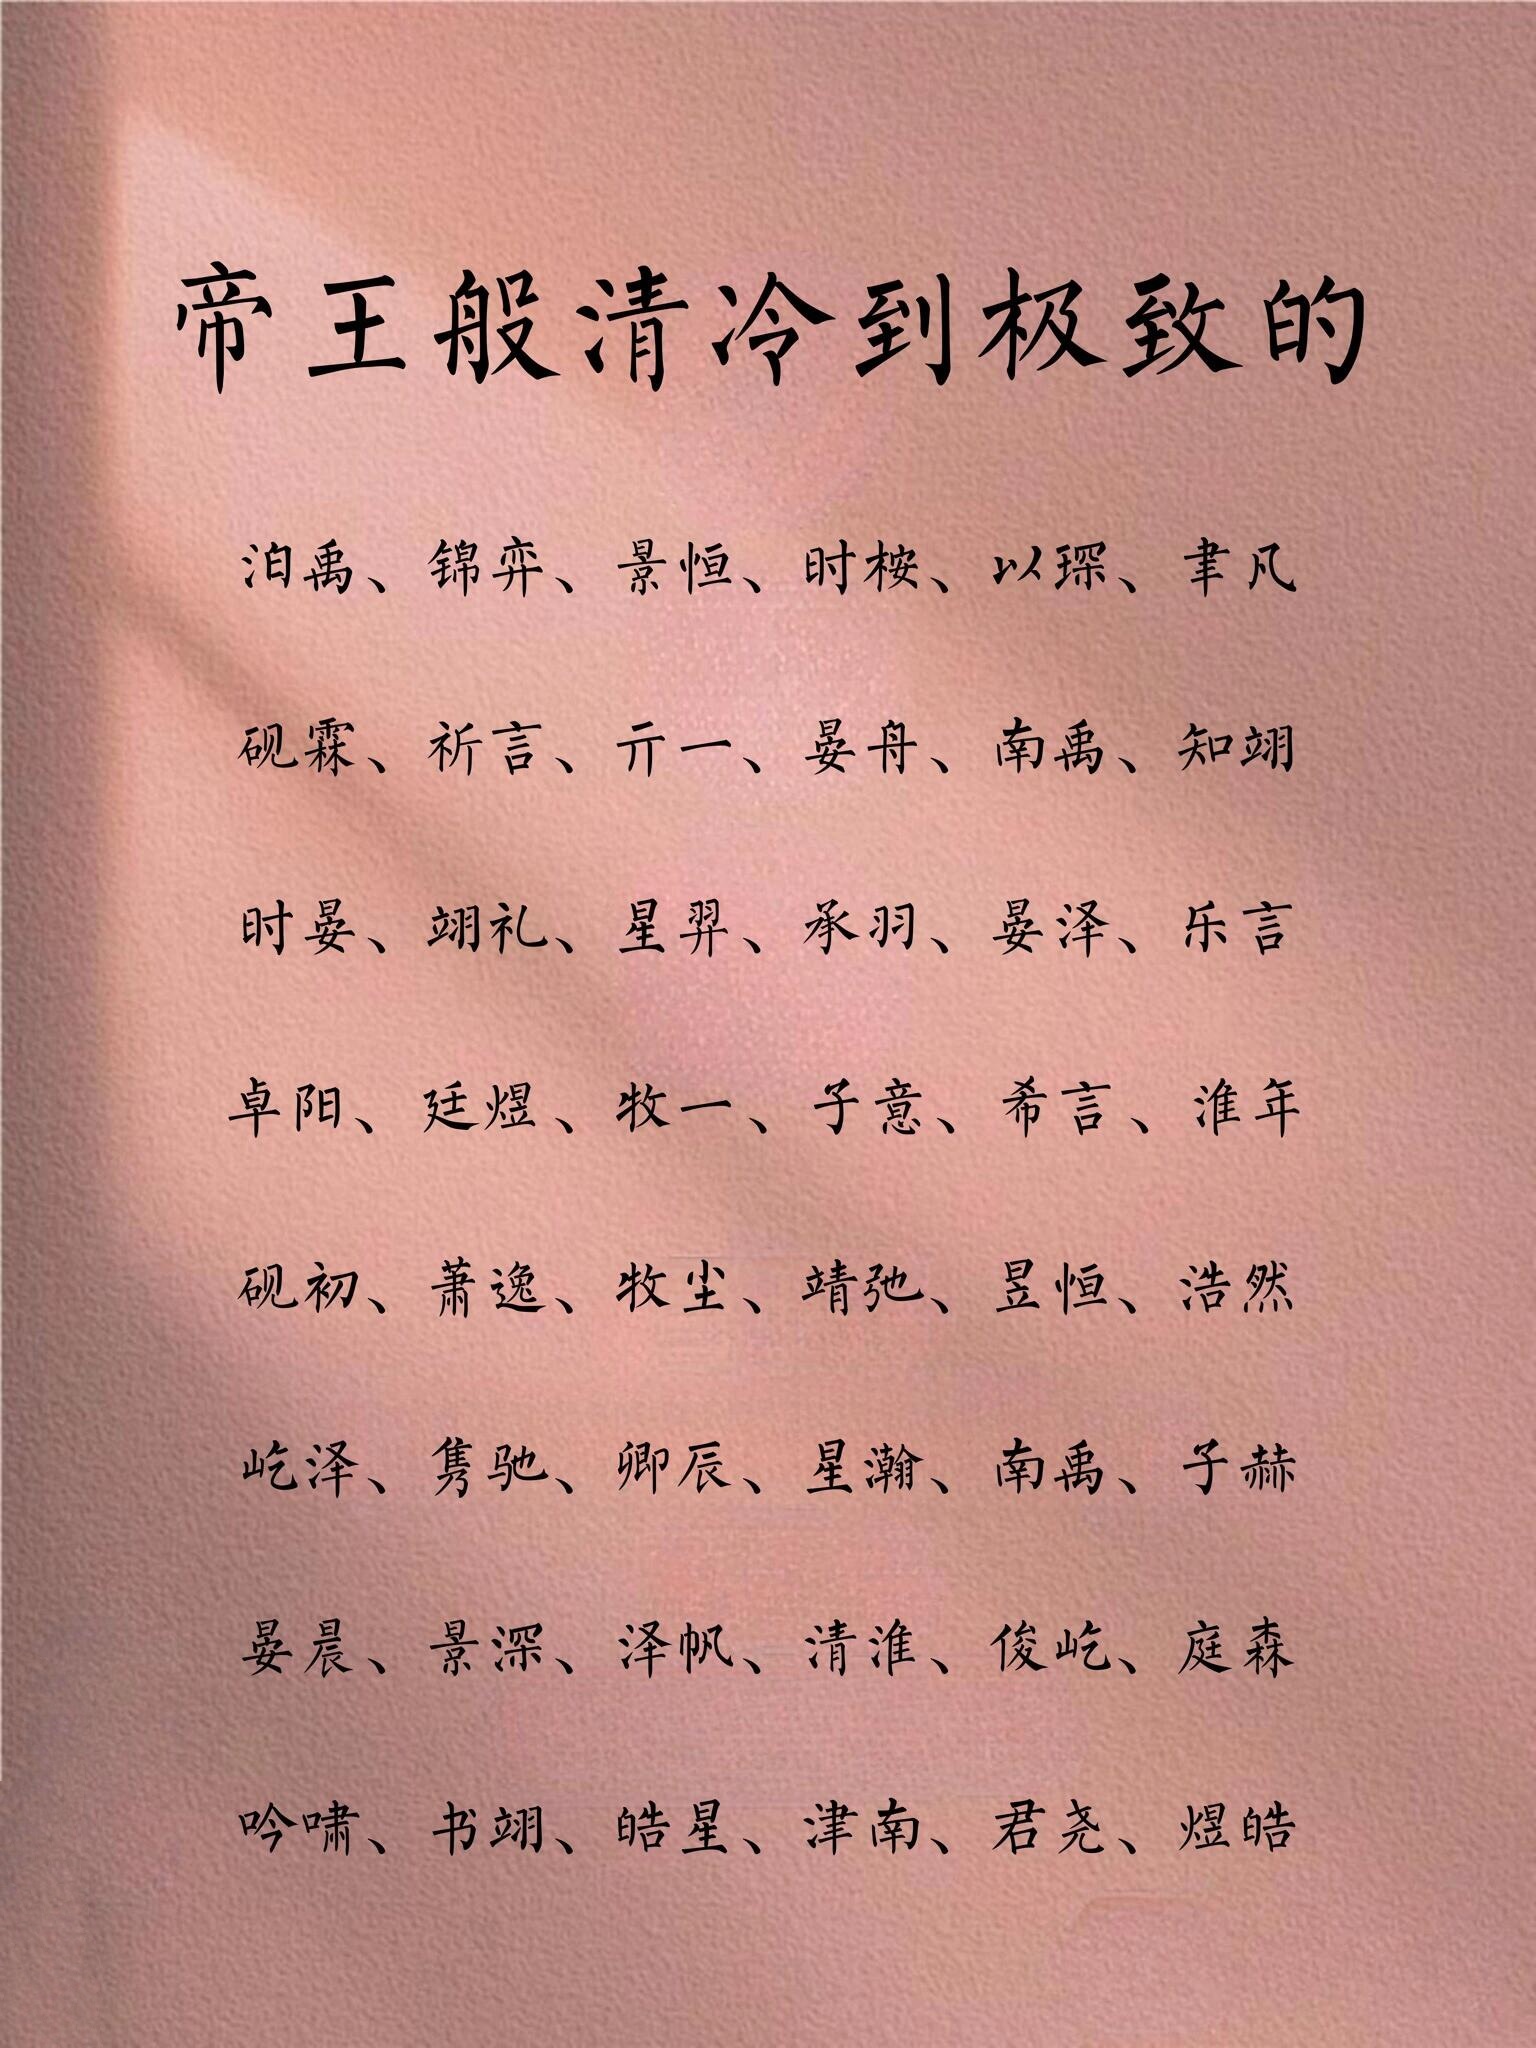 帝王般清冷到极致的
泊禹、锦弈、景恒、时桉、以琛、聿凡
砚霖、祈言、亓一、晏舟、南禹、知翊
时晏、翊礼、星羿、承羽、晏泽、乐言
卓阳、廷煜、牧一、子意、希言、淮年
砚初、萧逸、牧尘、靖弛、昱恒、浩然
屹泽、隽驰、卿辰、星瀚、南禹、子赫
晏晨、景深、泽帆、清淮、俊屹、庭森
吟啸、书翊、皓星、津南、君尧、煜皓